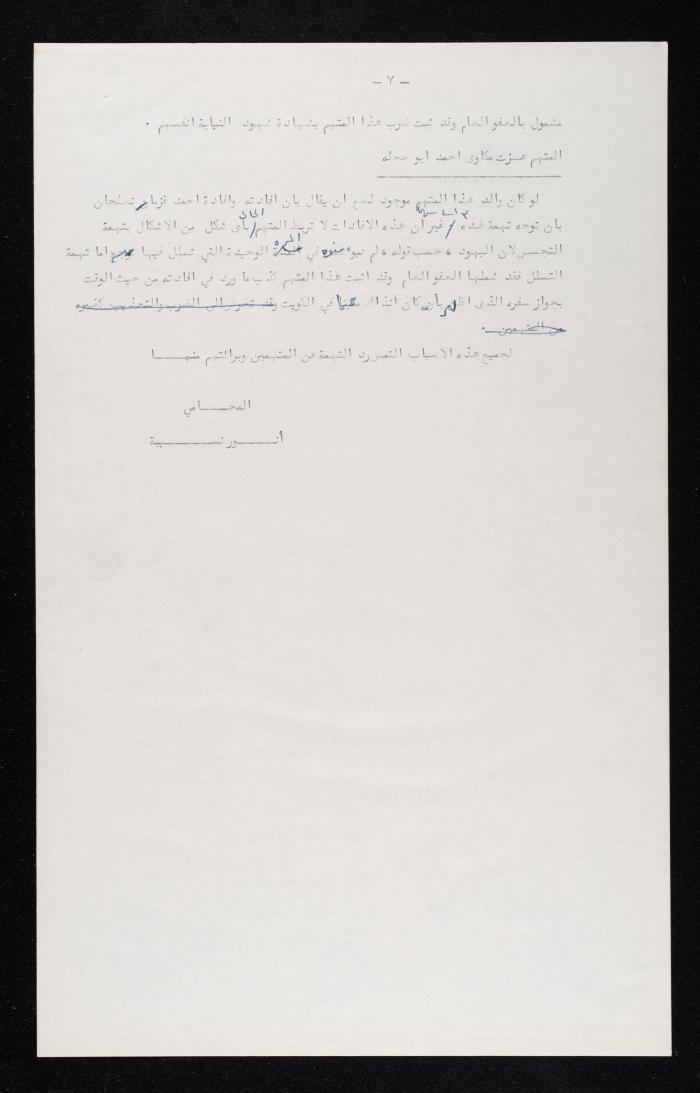 - ٧ -
مشمول بالعفو العام وقد ثبت ضرب هذا المتهم بشهادة شهود النيابة انفسهم .
المتهم عزت مكاوى احمد ابو حجله
لو كان والد هذا المتهم موجود لصح ان يقال بان افادته وافادة احمد قزمار تصلحان
اساسا الحالى
بان توجه تهمة ضده غير ان هذه الافادات لا تربط المتهم بأى شكل من الاشكال بتهمة
المره
التجسس لان اليهود ، حسب قوله ، لم في المدة الوحيدة التي تسلل فيها اما تهمة
التسلل فقد شملها العفو العام وقد اثبت هذا المتهم كذب ما ورد في افادته من حيث الوقت
بجواز سفره الذى بأنه كان آنذاك في الكويت وقد تعرض الى الضرب والتعذيب كغيره
من المتهمين .
لجميع هذه الاسباب التمس رد التهمة عن المتهمين وبرائتهم منهـــا
المحـــامي
أنـــور نسـيبة